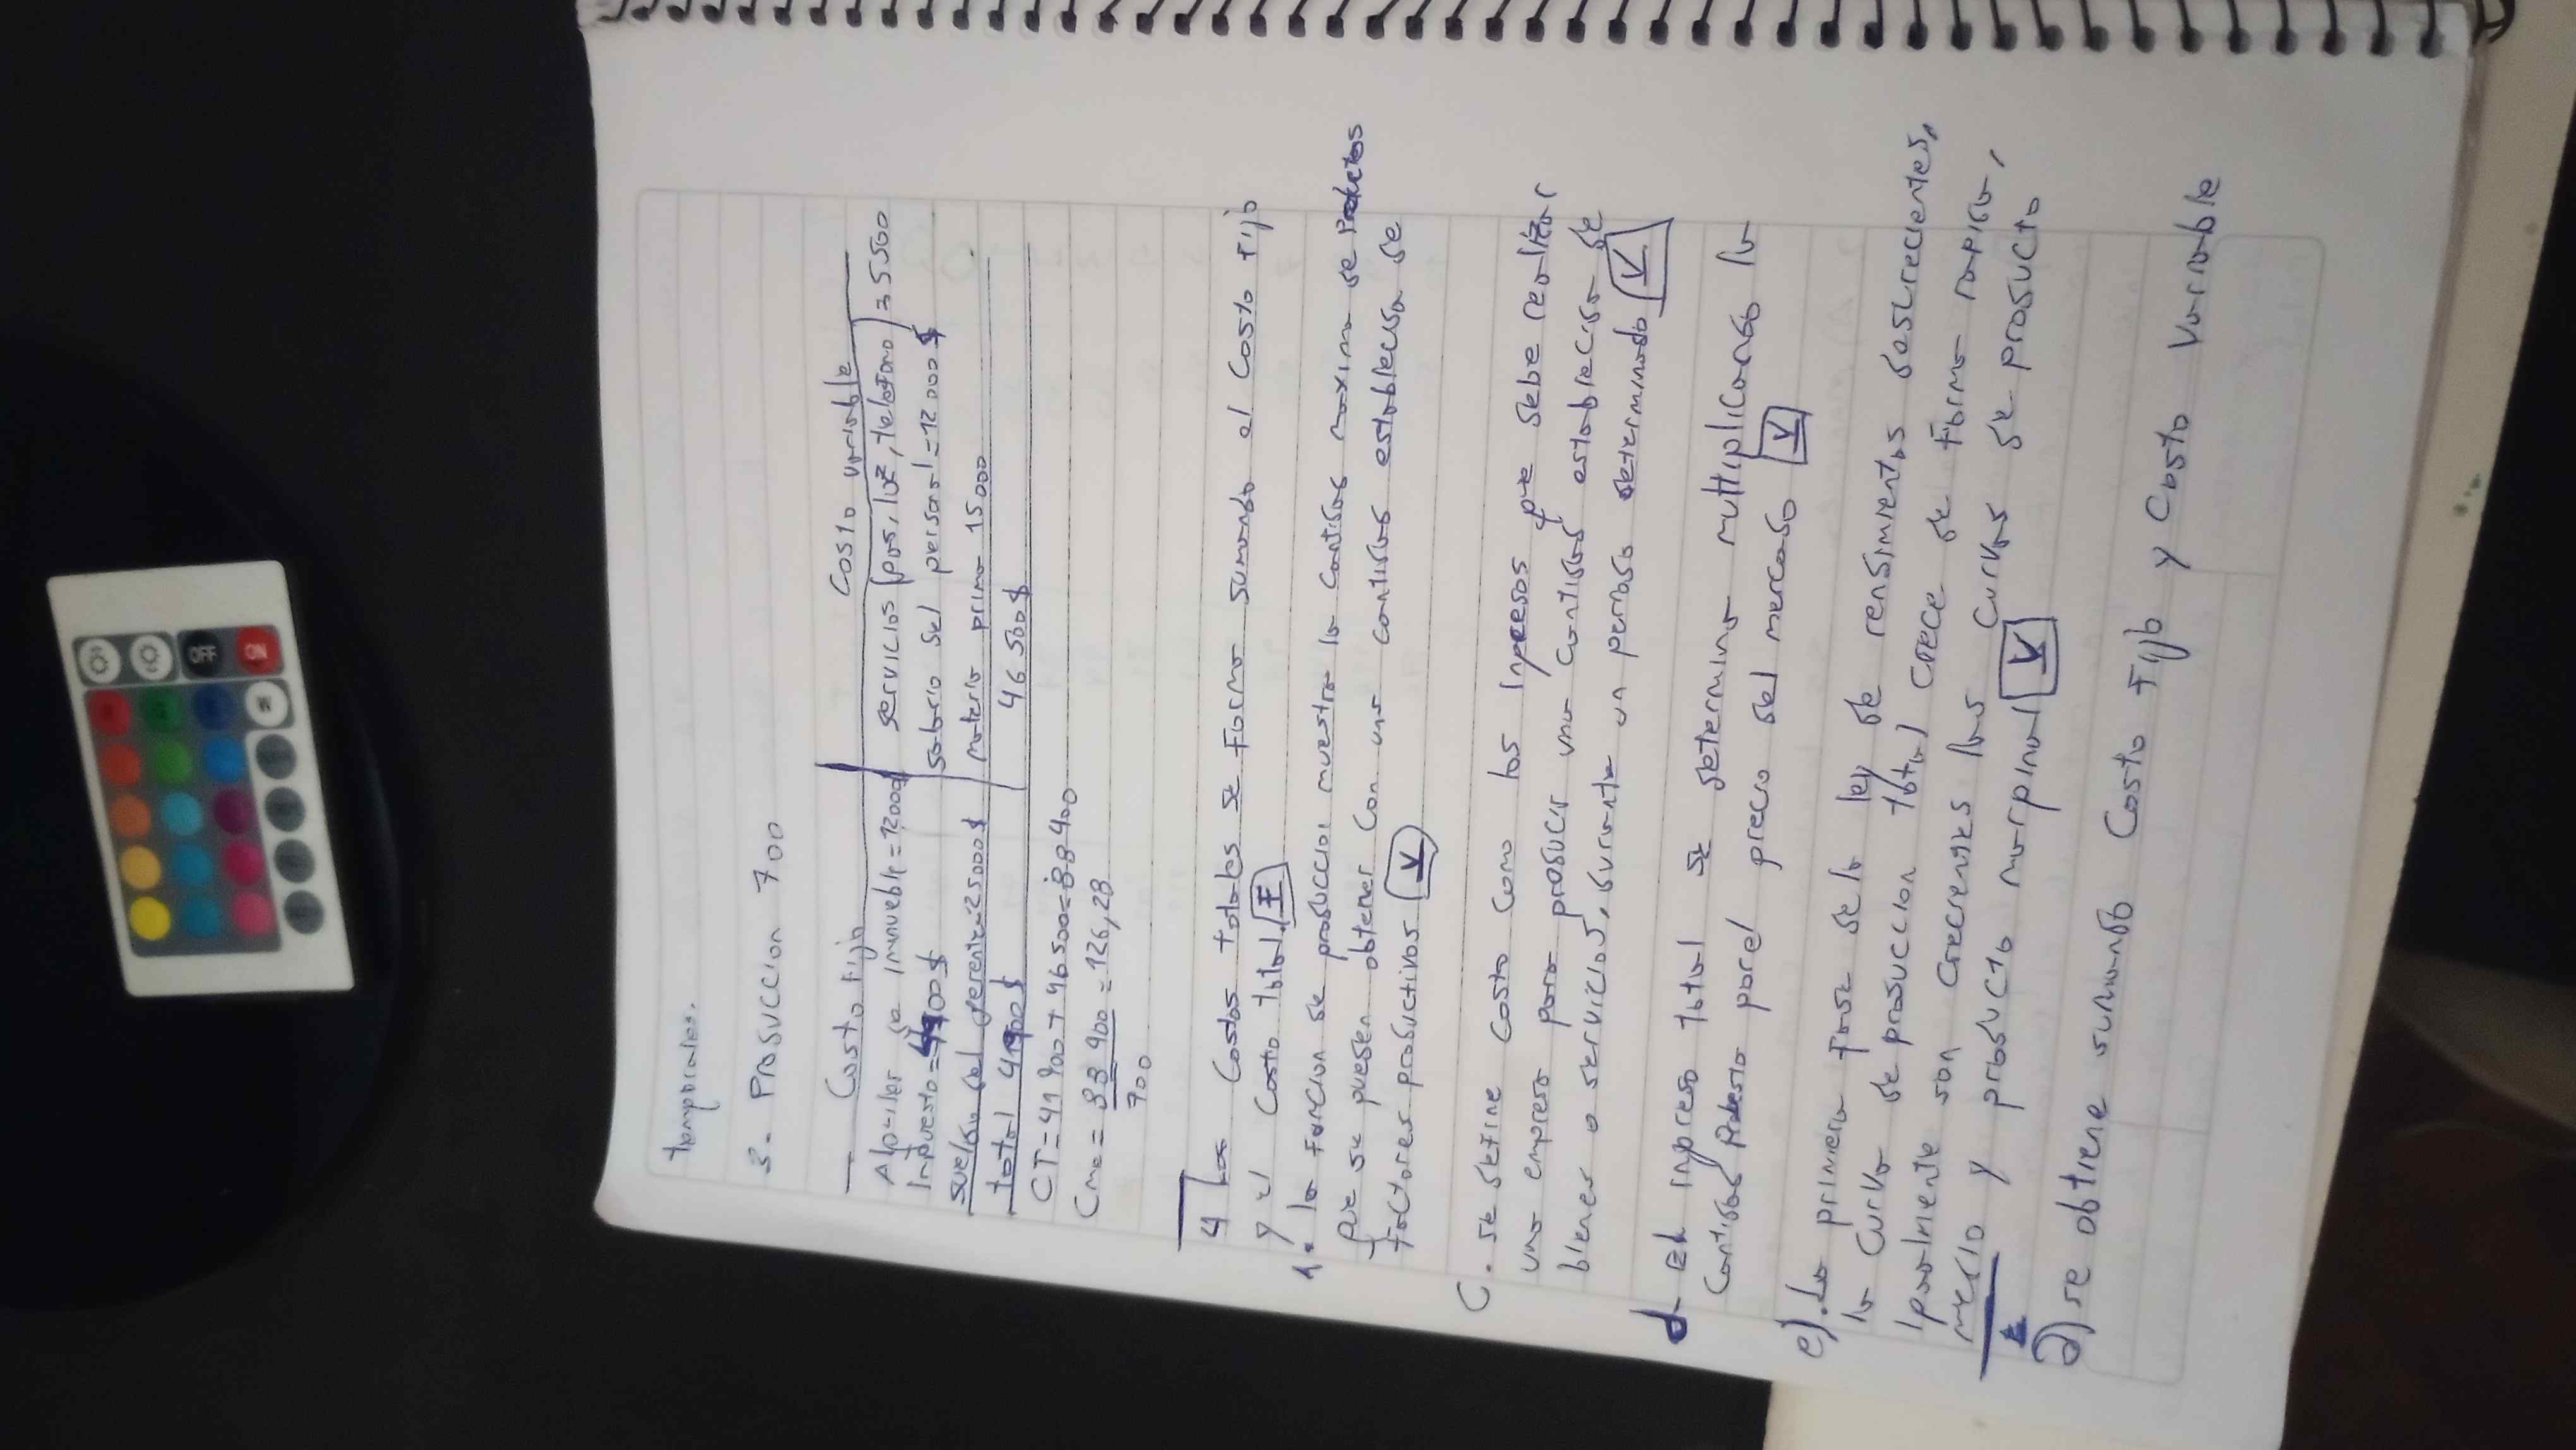 temporales.
3- Produccion 700
Costo Fijo Costo variable
Alquiler de inmueble = 12000$ servicios (gas, luz, telefono) = 5500
Inpuesto = 4900$ salario del personal = 12000$
sueldo del gerente = 25000$ materia prima 15000
total 41900$ 46500$
CT = 41900 + 46500 = 88400
Cme = 88400 = 126,28
700
4 Los Costos totales se Forma sumando el Costo Fijo
y el Costo total. F
1. la Funcion de produccion muestra la cantidad maxima de Productos
que se pueden obtener Con una cantidad establecida de
factores productivos V
C. se define Costo Como los Ingresos que debe realizar
una empresa para producir una cantidad establecida de
bienes o servicios, durante un periodo determinado V
d- El ingreso total se determina multiplicando la
Cantidad Puesta por el precio del mercado V
e). La primera Fase de la ley de rendimientos decrecientes,
la curva de produccion total crece de Forma rapida,
Igualmente son Crecientes las curvas de producto
medio y producto marginal V
a) se obtiene sumando Costo Fijo y Costo Variable
OFF
ON
W